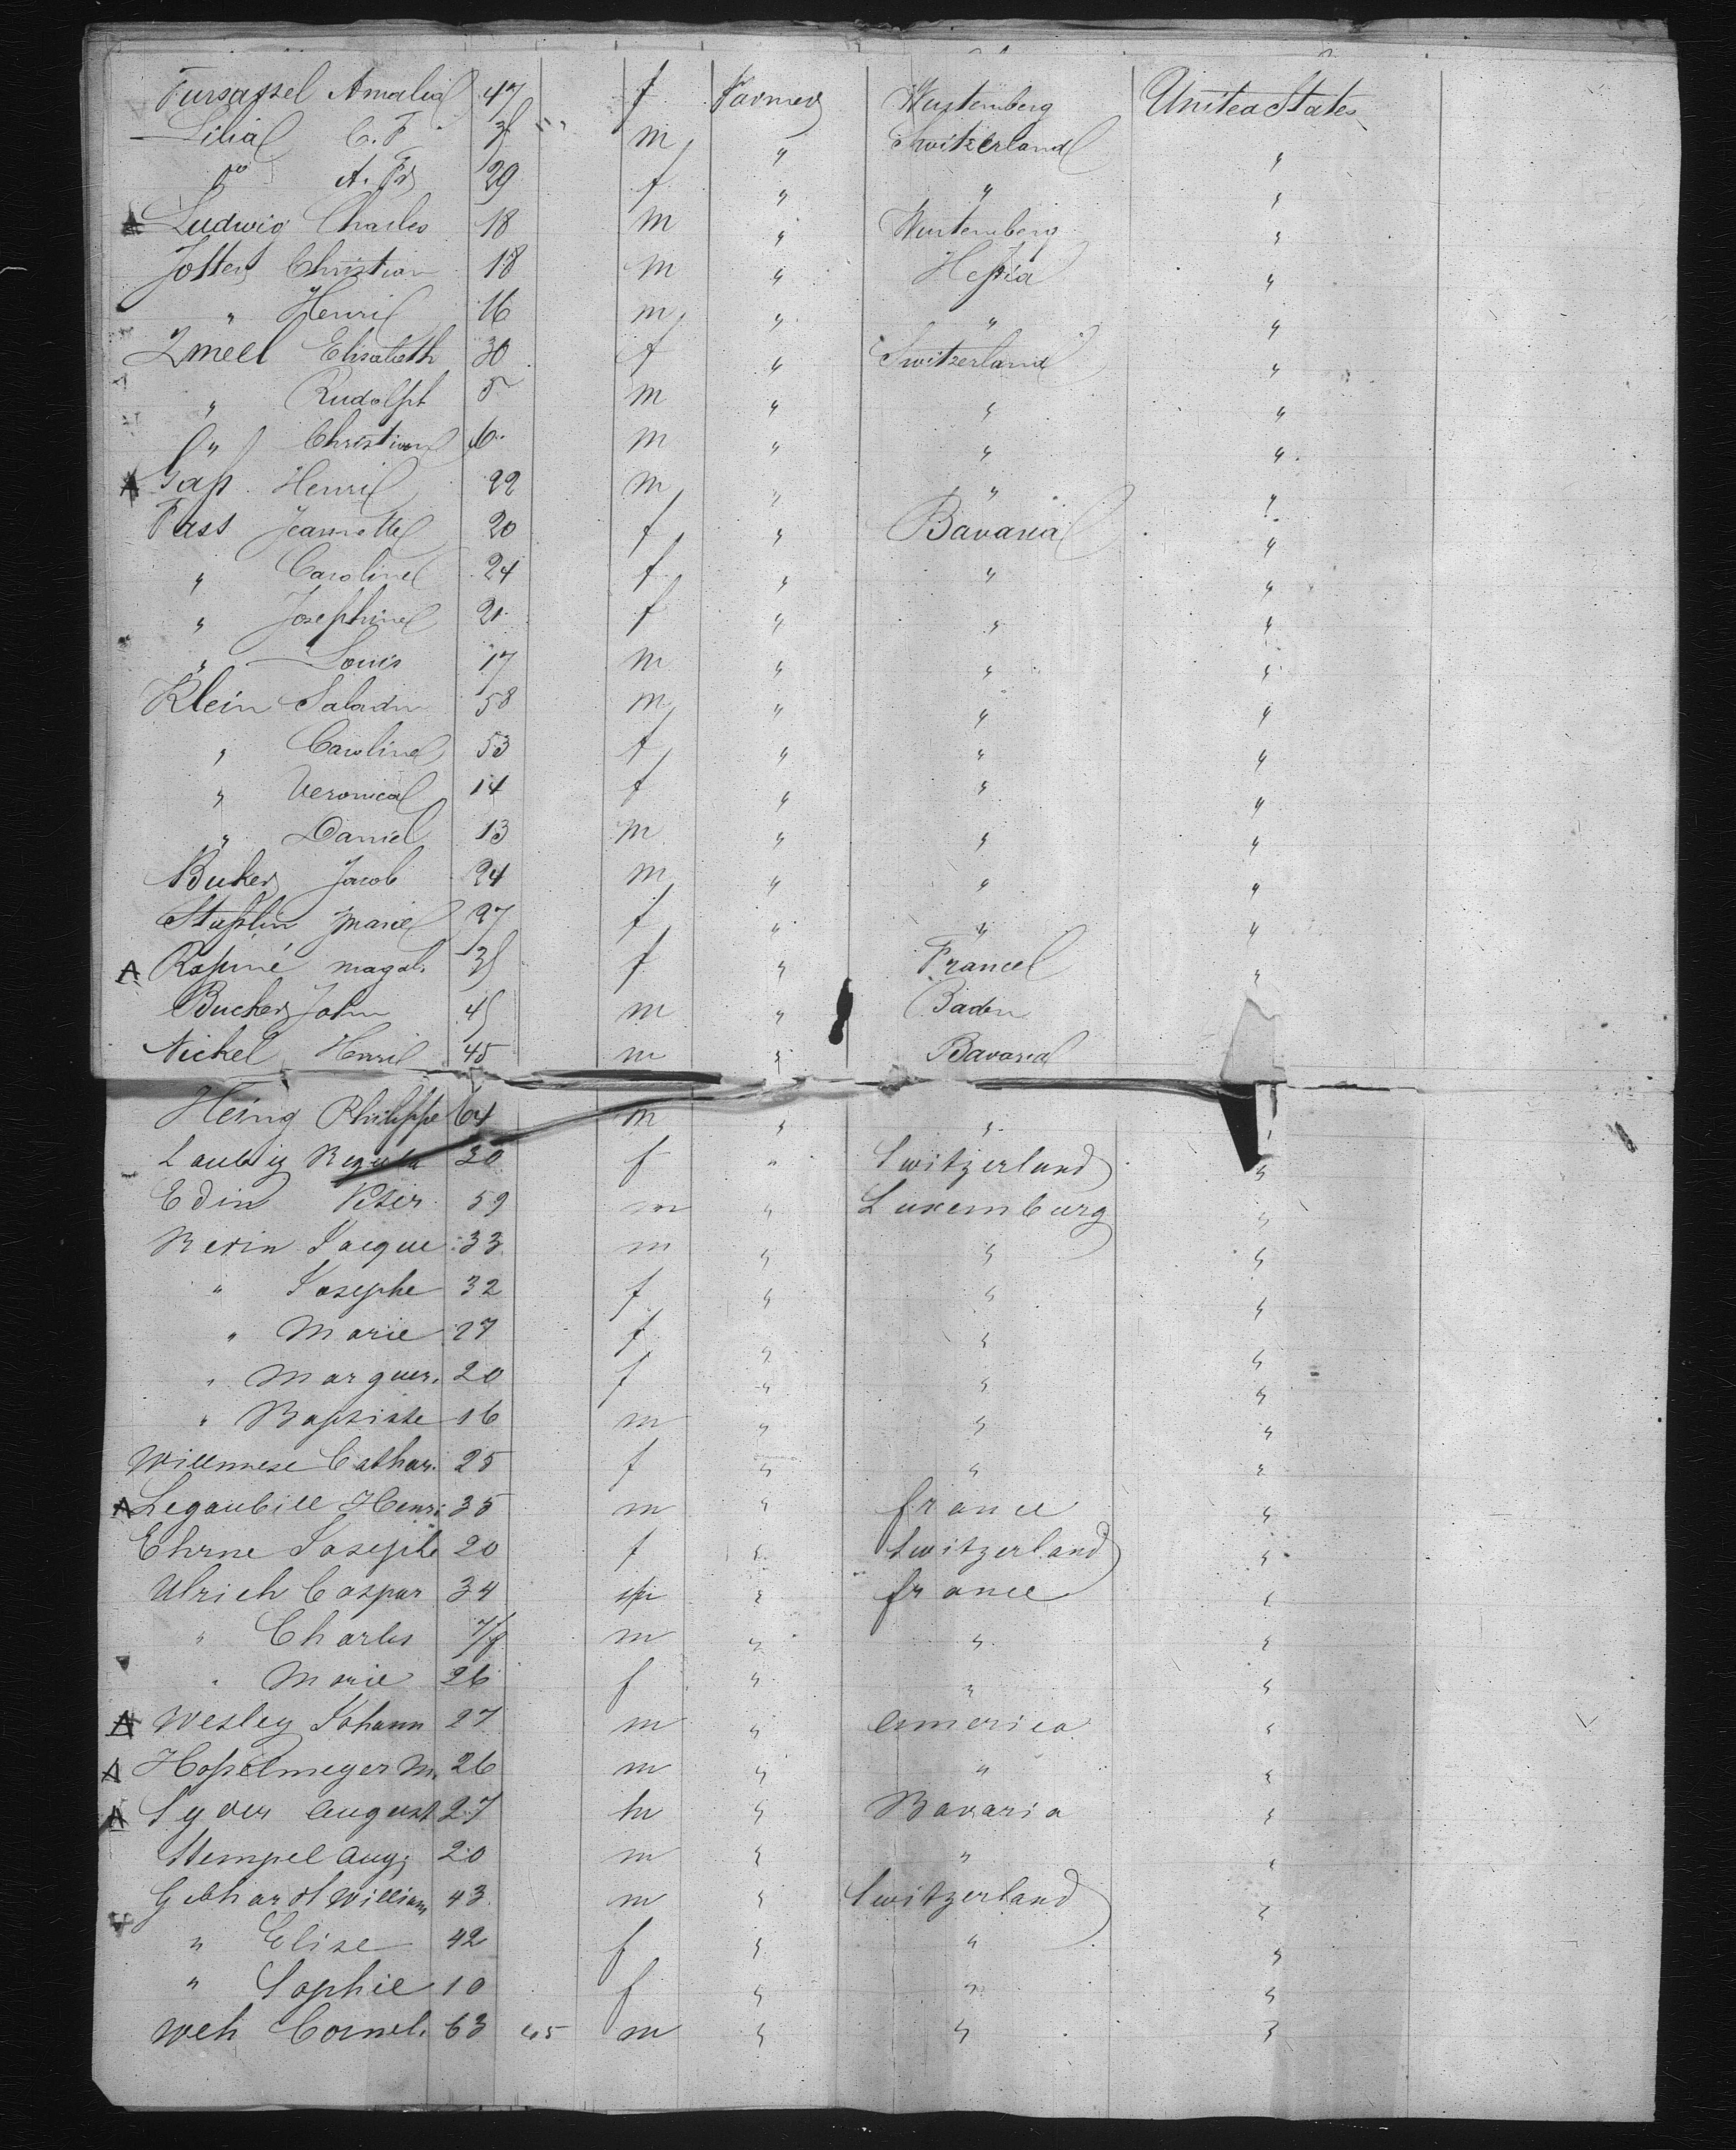 Amalia 47 f Farmer Wurtemberg United States
Lilia C. F. m " Switzerland "
Do A. F. 29 f " " "
A Ludwig Charles 18 m " Wurtemberg "
Christian 18 m " Heſsia "
" Henri 16 m " " "
Zmeel Elisabeth 30 f " Switzerland "
" Rudolph 5 m " " "
" Christian 6 m " " "
A Henri 22 m " " "
Fass Jeannette 20 f " Bavaria "
" Caroline 24 f " " "
" Josephine 21 f " " "
" Louis 17 m " " "
Klein Saladin 58 m " " "
" Caroline 53 f " " "
" Veronica 14 f " " "
" Daniel 13 m " " "
Buker Jacob 24 m " " "
Marie 27 f " " "
A magda. f " France "
Bucker John m " Baden
Nickel Henri 45 m " Bavaria
Heing Philippe 64 m " " "
Regula 30 f " Switzerland "
Edin Peter 59 m " Luxemburg "
Rerin Jacque 33 m " " "
" Josephe 32 f " " "
" Marie 27 f " " "
" Marguer. 20 f " " "
" Baptiste 16 m " " "
Cathar. 25 f " " "
A Legaubill Henri 35 m " france "
Ehrne Josephe 20 f " Switzerland "
Ulrich Caspar 34 m " france "
" Charles m " " "
" Marie 26 f " " "
A Wesley Johann 27 m " America "
A Hoſselmeyer M. 26 m " " "
A Syder August 27 m " Bavaria "
Stempel Aug. 20 m " " "
Gebhardt William 43 m " Switzerland "
" Elise 42 f " " "
" Sophie 10 f " " "
Weh Cornel. 63 45 m " " "